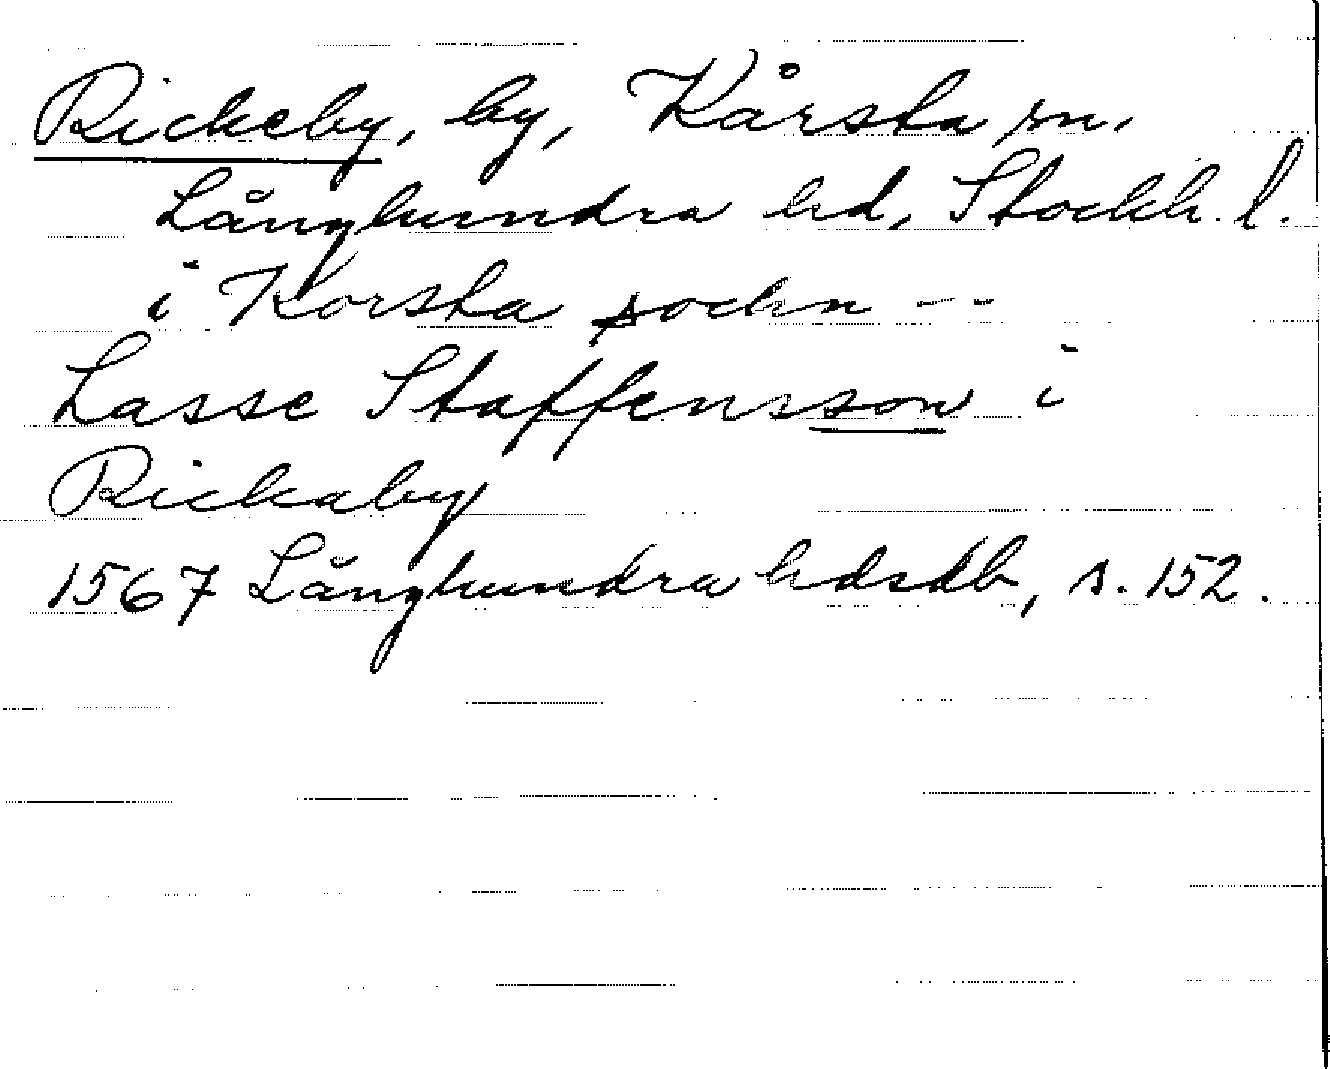 Rickeby, by, Kårsta sn,
Långhundra hd, Stockh. l.
i Korsta sochn ---
Lasse Staffensson i
Rickaby
1567 Långhundra hdsdb, s. 152.